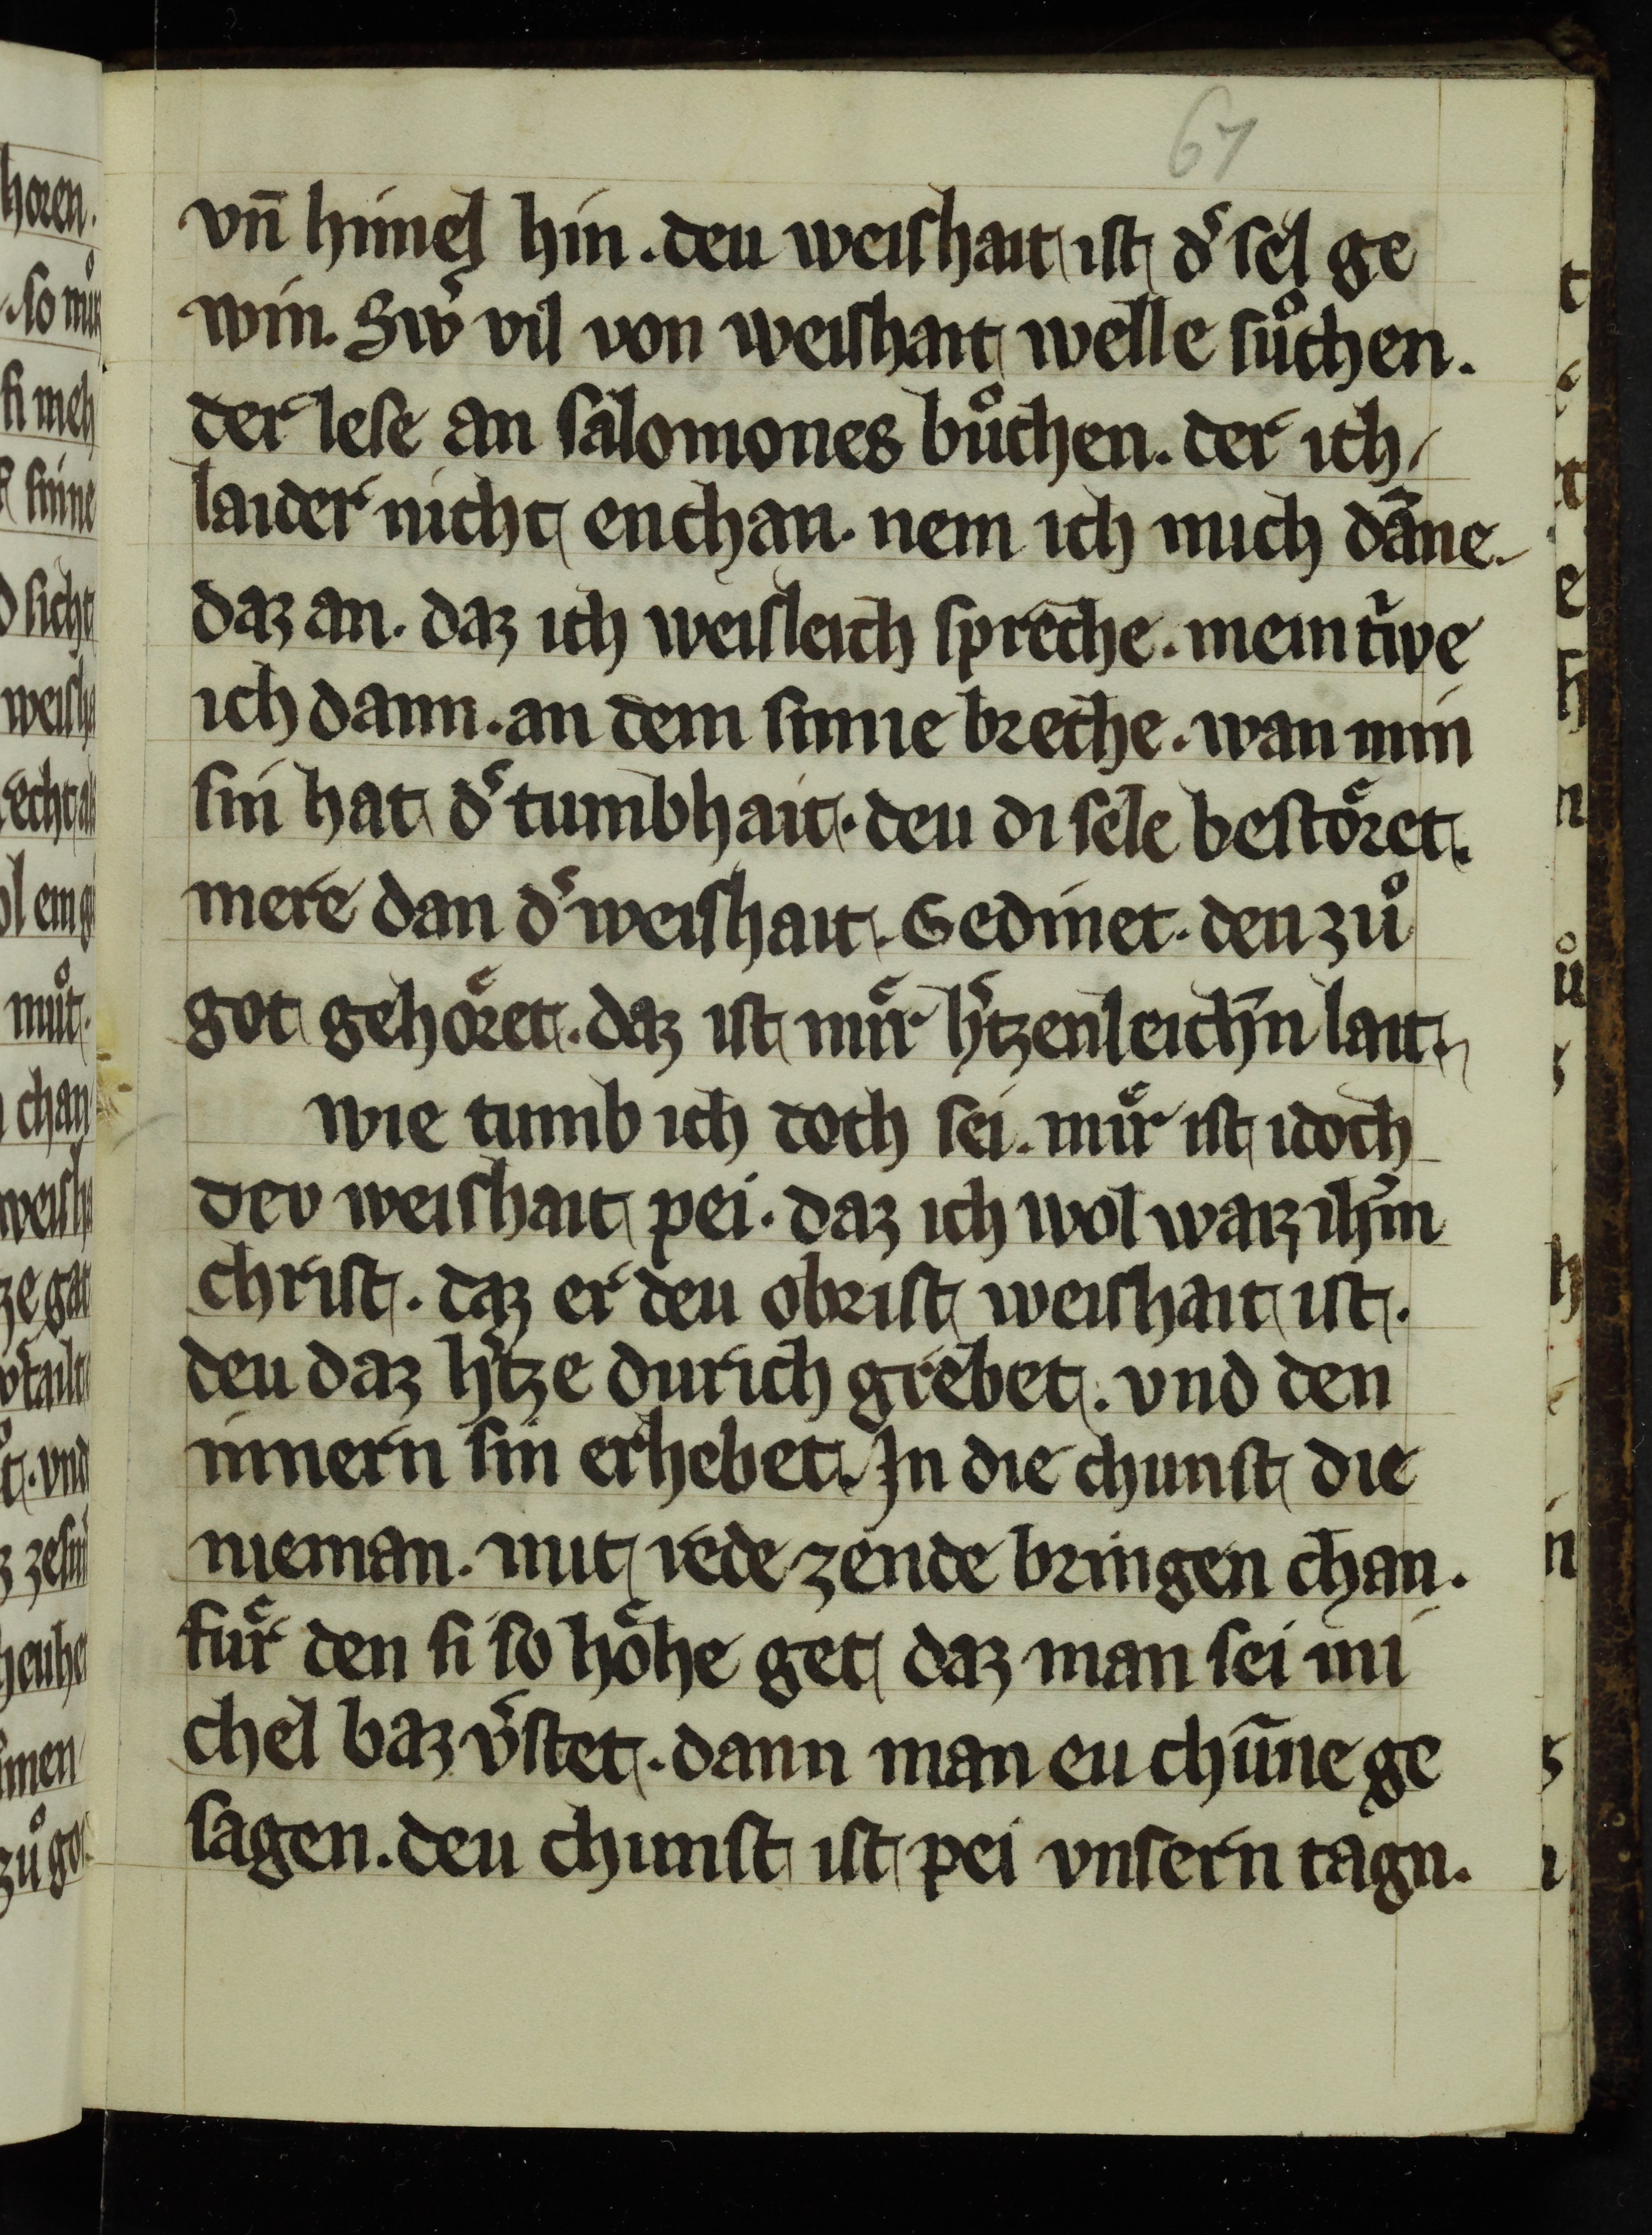 67
vn̄ himel hin. deu weishait ist d' sel ge
win. Sw' vil von weishait welle sůchen.
der lese an salomones bůchen. der ich
laider nicht enchan. nem ich mich dāne
daz an. daz ich weisleich spreche. mein t'we
ich dann. an dem sinne breche. wan min
sin hat d' tumbhait. deu di sele bestoͤret.
mere dan d' weishait. Gedinet. deu zů
got gehoͤret. daz ist muͤr h'tzenleich'n lait.
wie tumb ich doch sei. muͤr ist idoch
dev weishait pei. daz ich wol waiz ih'm
christ. daz er deu obrist weishait ist.
deu daz h'tze durich grebet. vnd den
innern sin erhebet. In die chunst die
nieman. mit rede zende bringen chan.
fuͤr den si so hoͤhe get daz man sei mi
chel baz v'stet. dann man eu chūne ge
sagen. deu chunst ist pei vnsern tagn.